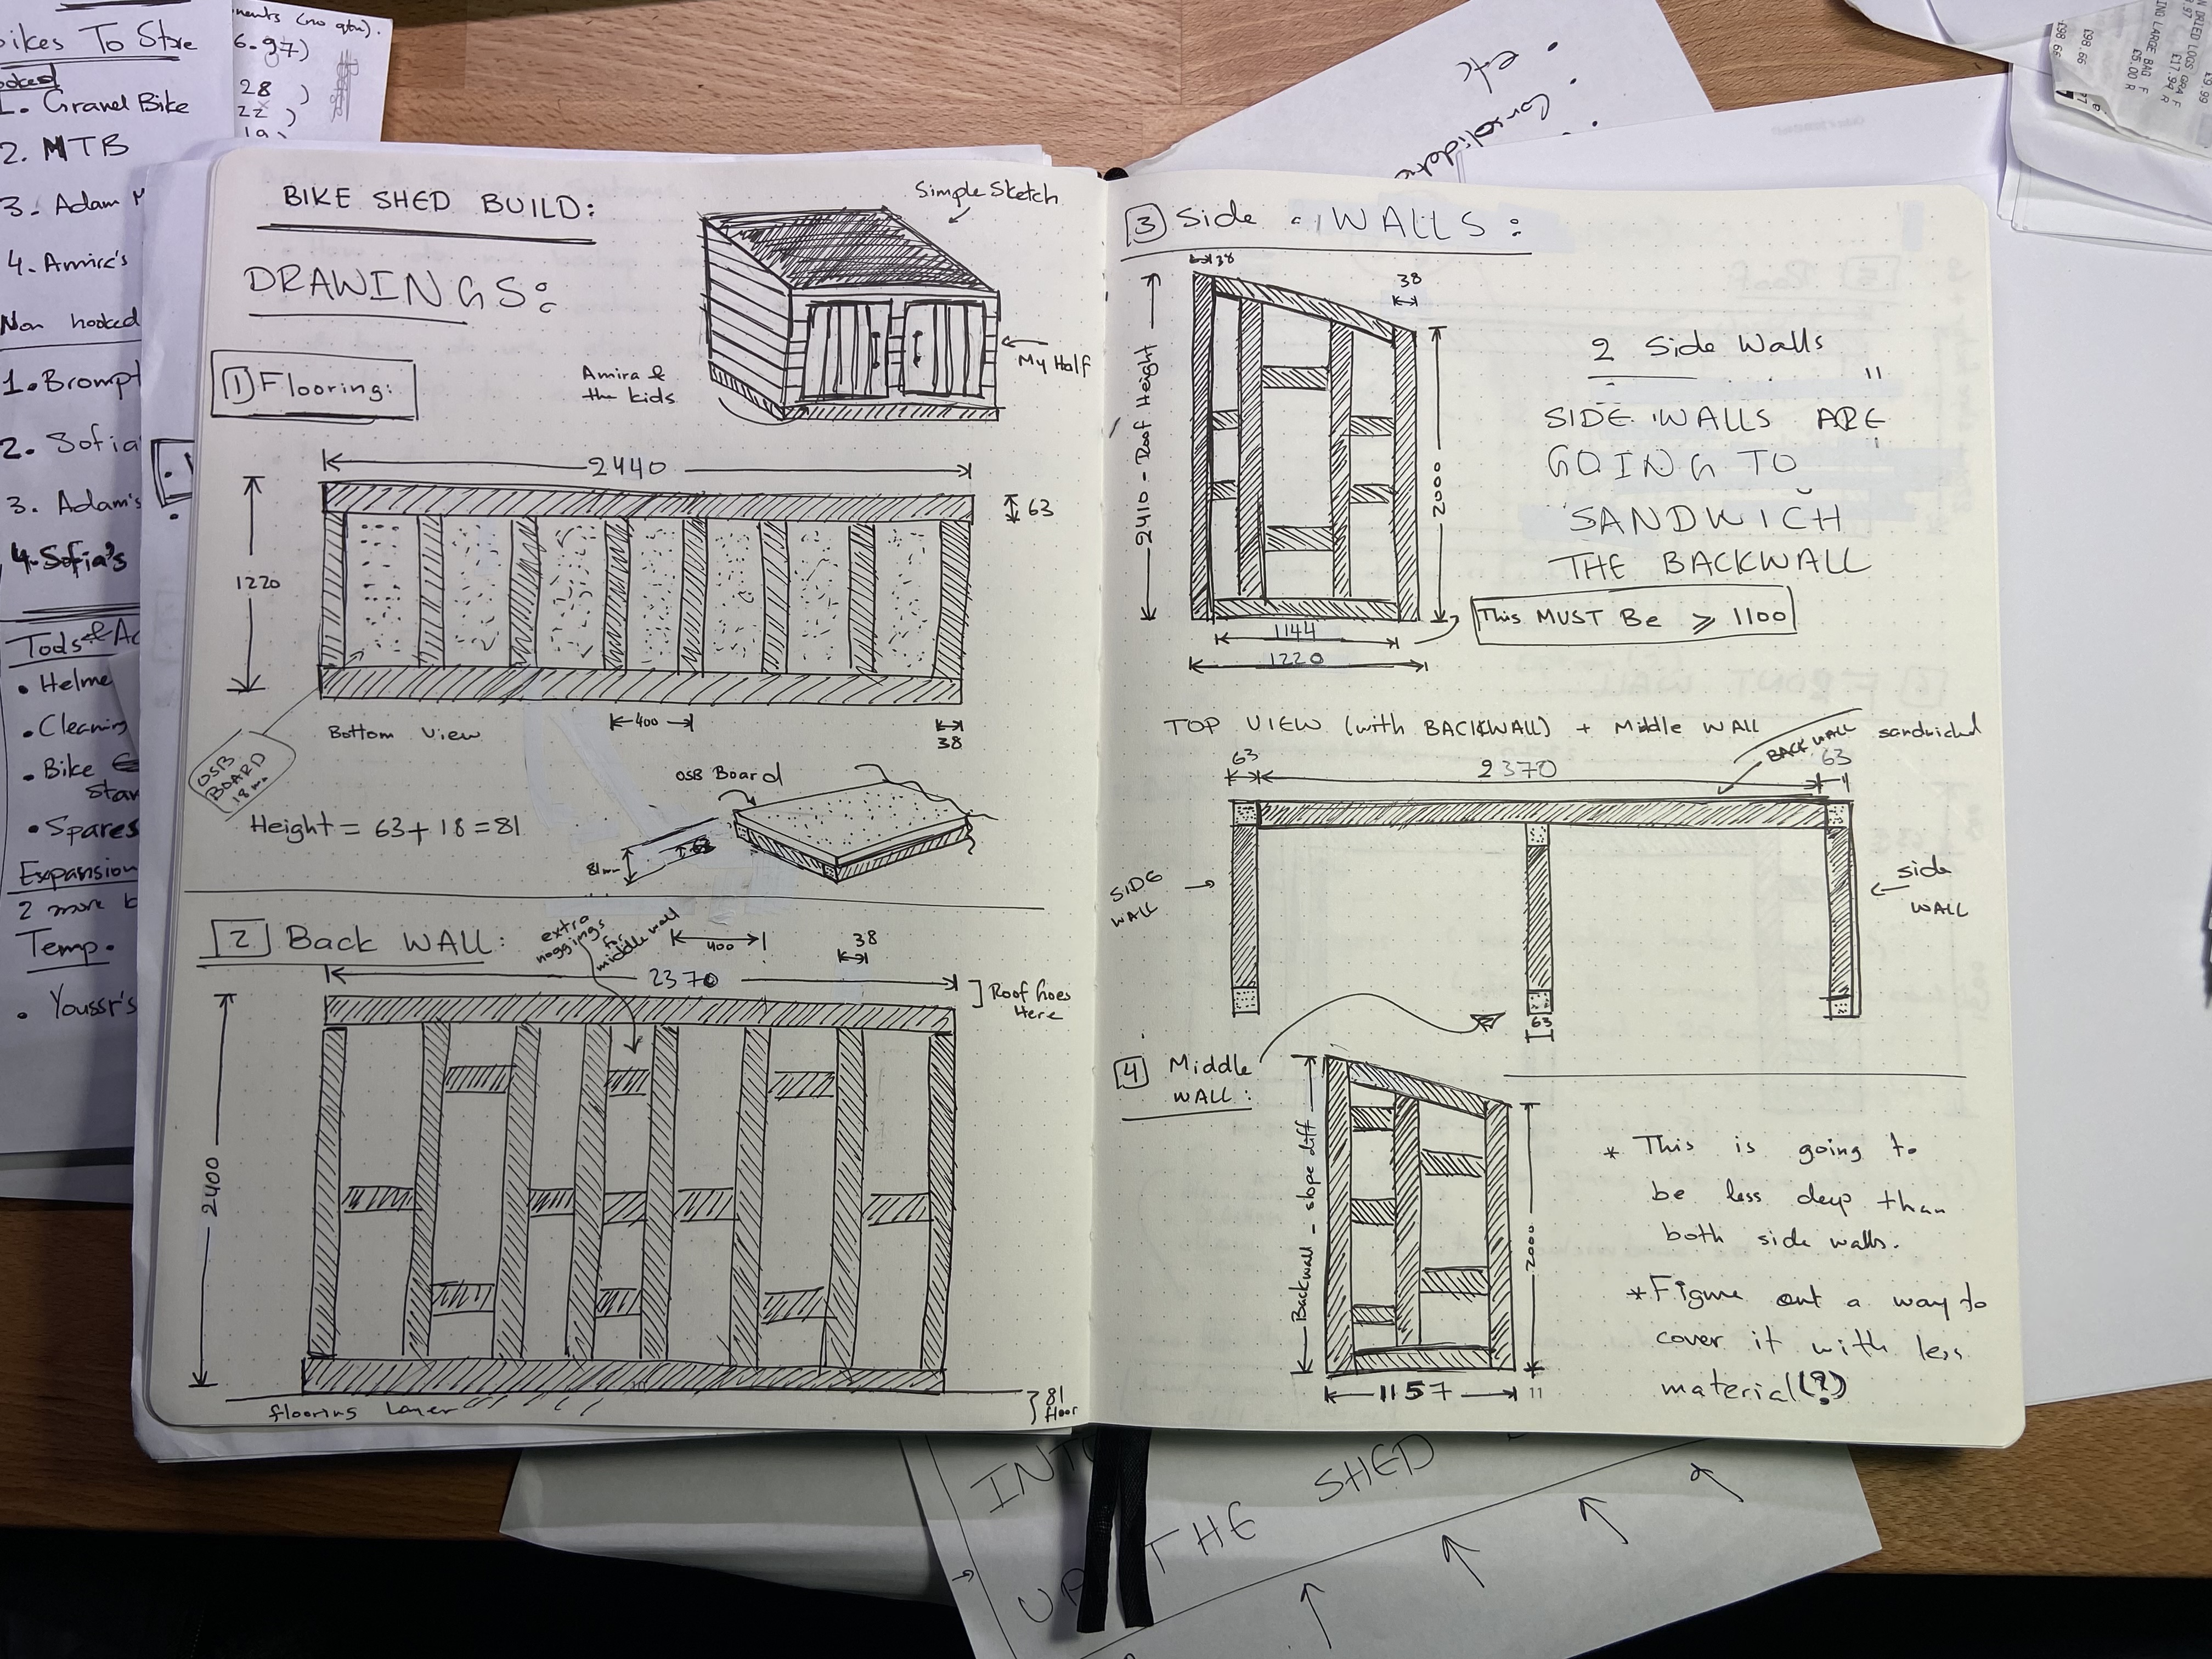 Bikes To Store
1. Gravel Bike
2. MTB
3. Adam
4. Amira's
Non hooked
1. Brompt
2. Sofia
3. Adam's
4. Sofia's
Tools & Ac
• Helme
• Cleaning
• Bike
Stan
• Spares
Expansion
2 more b
Temp.
• Youssr's
(no qtn).
6.97)
28 )
22 )
BIKE SHED BUILD:
DRAWINGS:
Simple Sketch
My Half
Amira &
the kids
1 Flooring:
2440
63
1220
400
38
Bottom View
OSB
BOARD
18mm
Height = 63 + 18 = 81
OSB Board
81mm
63
2 Back WALL:
extra
noggings
for
middle wall
400
38
2370
Roof Goes
Here
2400
flooring layer
81
floor
3 Side WALLS:
38
38
2410 - Roof Height
2000
1144
1220
2 Side Walls
SIDE WALLS ARE
GOING TO
SANDWICH
THE BACKWALL
This MUST Be ⩾ 1100
TOP VIEW (with BACKWALL) + Middle WALL
BACK WALL sandwiched
63
2370
63
SIDE
WALL
side
WALL
63
4 Middle
WALL:
Backwall - slope diff
2000
1157
* This is going to
be less deep than
both side walls.
* Figure out a way to
cover it with less
material(?)
• etc
• Consolidate
£9.99
£17.94 R
ING LARGE BAG F
£5.00 R
£98.66
£98.66
THE SHED